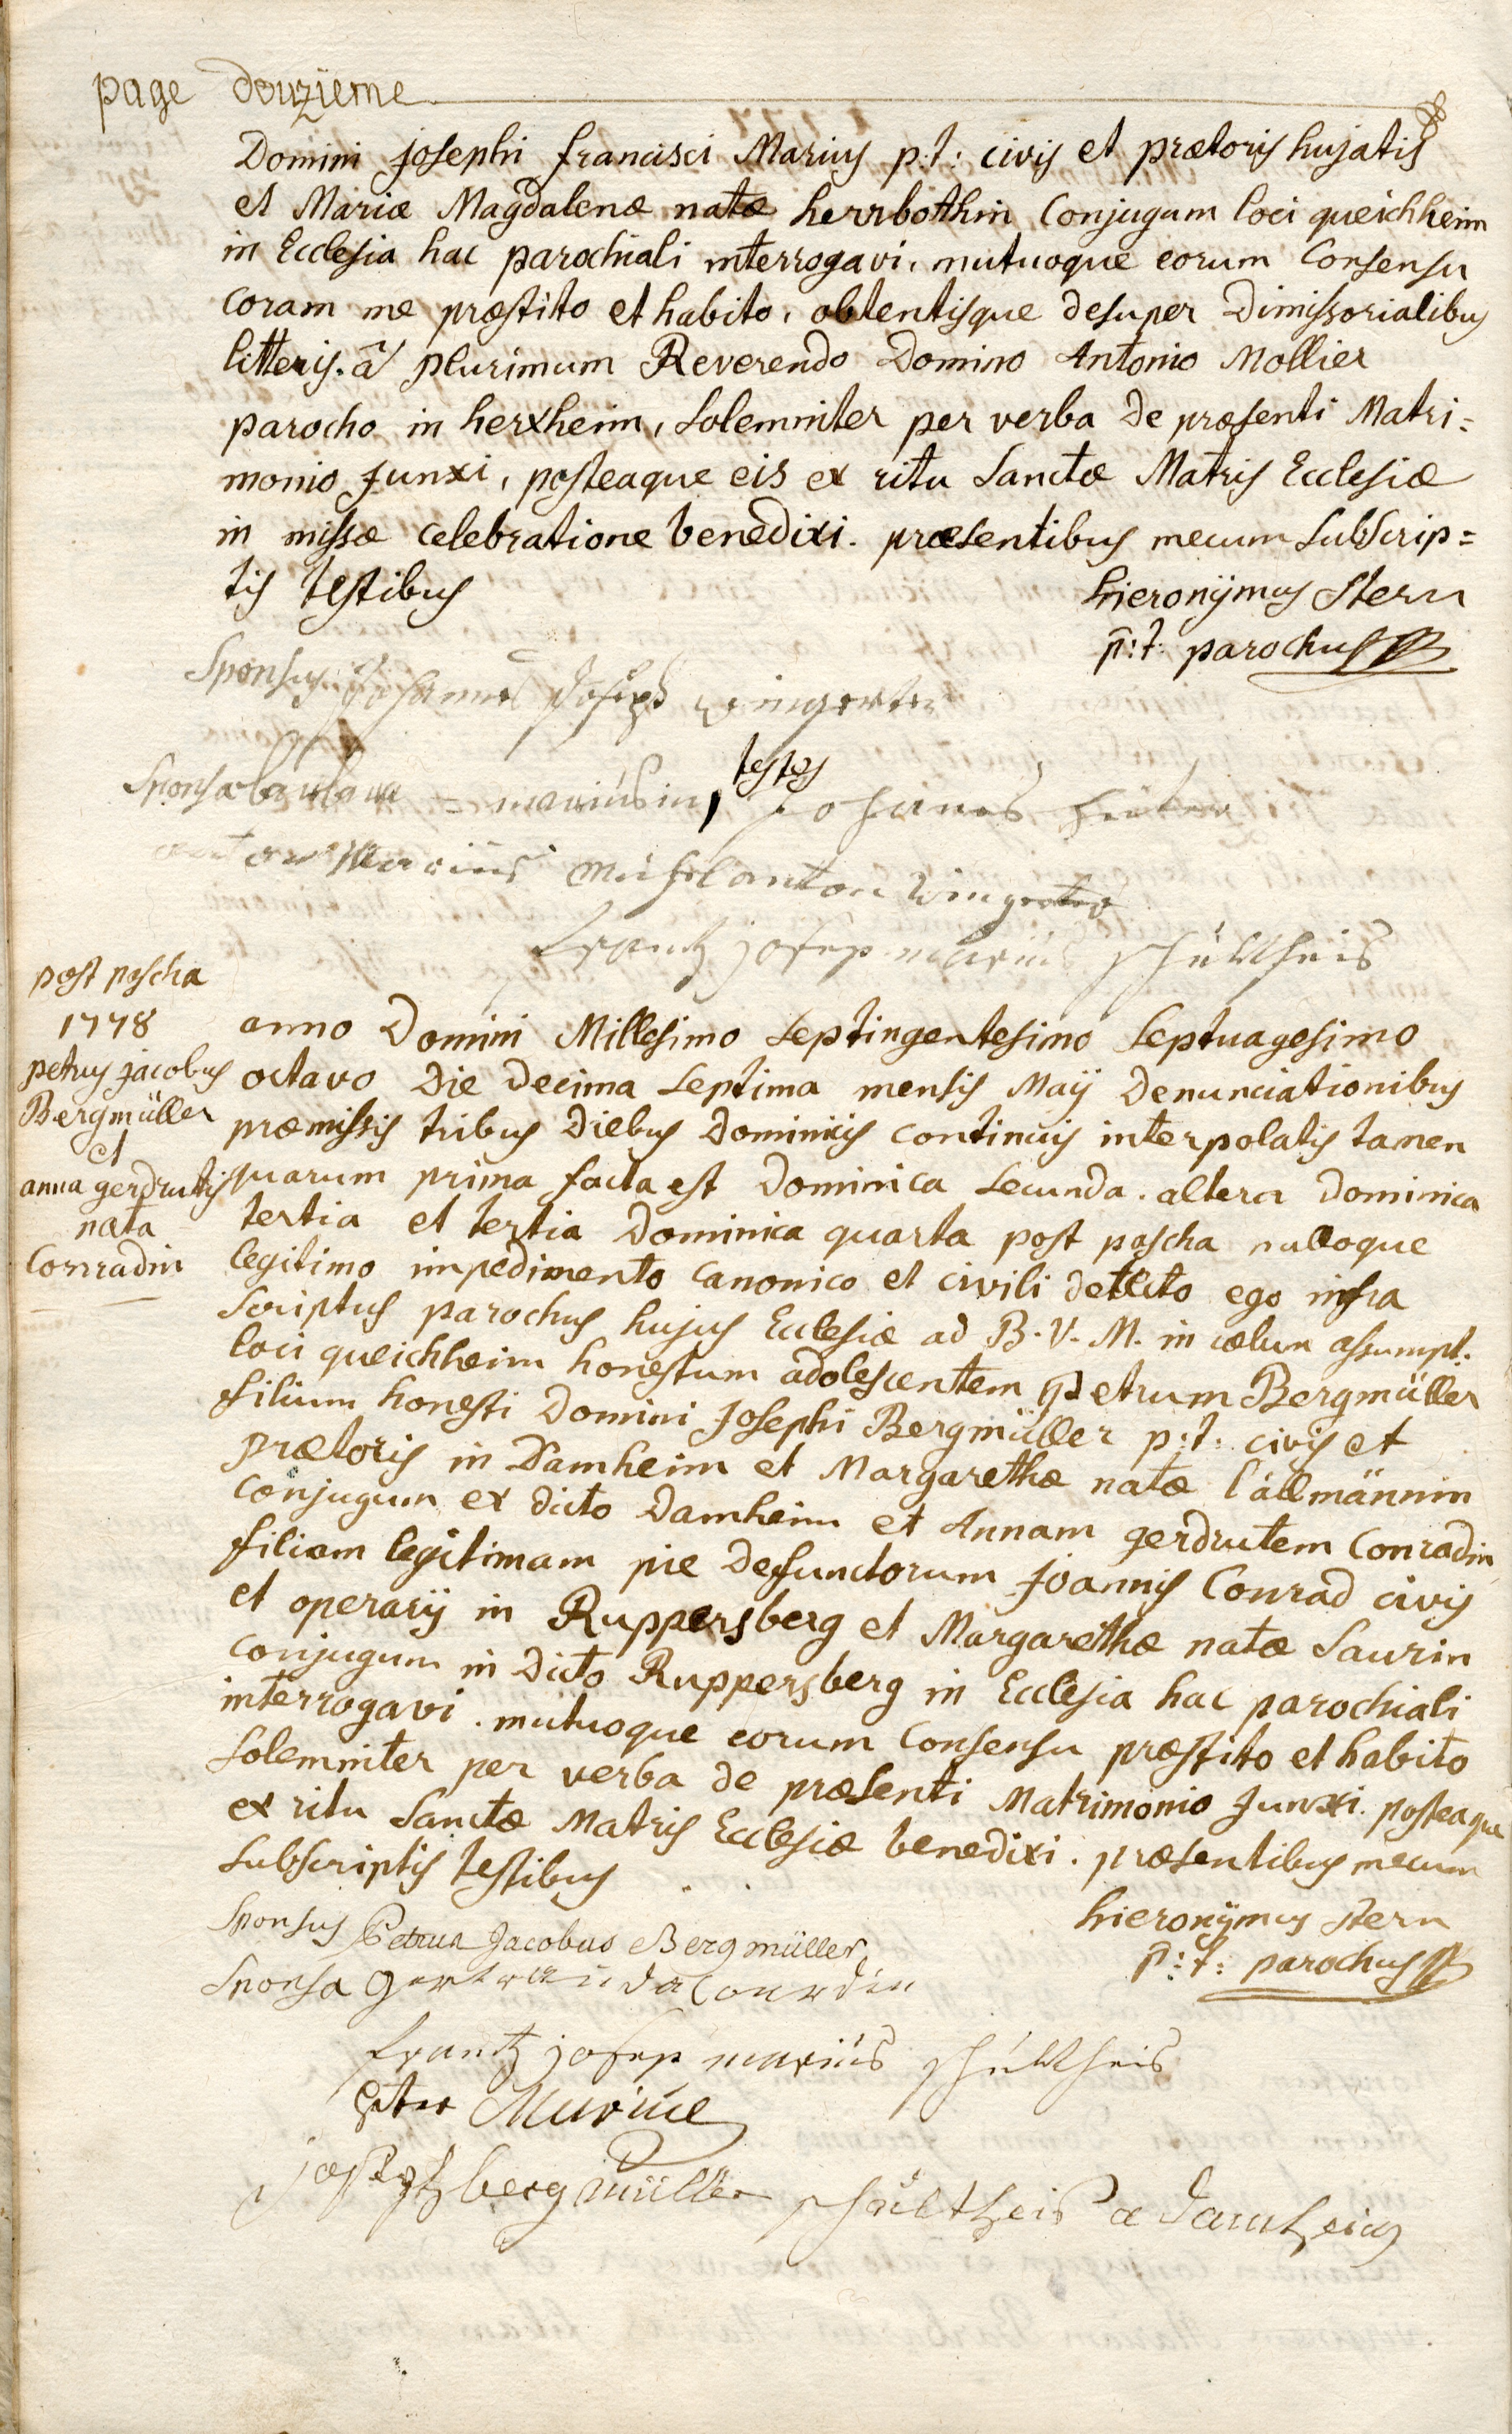 page douzieme
Domini Josephi francisci Marius p:t: civis et prætoris hujatis
et Mariæ Magdalenæ natæ herrbothin Conjugum loci queichheim
in Ecclesia hac parochiali interrogavi, mutuoque eorum Consensu
coram me præstito et habito, obtentisque desuper Dimissorialibus
litteris. â plurimum Reverendo Domino Antonio Mollier
parocho in herxheim, Solemniter per verba de præsenti Matri=
monio Junxi, posteaque eis ex ritu Sanctæ Matris Ecclesiæ
in missæ celebratione benedixi. præsentibus mecum Subscrip=
tis testibus
hieronÿmus Stern
p:t: parochus
Sponsus Johannes Joseph wingerter
Sponsa barbara = mariusin, testes Johannes
anton Marius Michel anton Wingerter
frantz josep marius schultheis
post pascha
1778
petrus jacobus
Bergmüller
et
anna gerdrutis
nata
Conradin
anno Domini Millesimo Septingentesimo Septuagesimo
octavo Die decima Septima mensis Maÿ Denunciationibus
præmissis tribus Diebus Dominicis continuis interpolatis tamen
quarum prima facta est Dominica Secunda. altera Dominica
tertia et tertia Dominica quarta post pascha nulloque
legitimo impedimento Canonico et civili detecto ego infra
Scriptus parochus hujus Ecclesiæ ad B. V. M. in cælum assumpt.
loci queichheim honestum adolescentem Petrum Bergmüller
filium honesti Domini Josephi Bergmüller p:t: civis et
prætoris in Damheim et Margarethæ natæ Callmännin
Conjugum ex dicto Damheim et Annam gerdrutem Conradin
filiam legitimam pie Defunctorum Joannis Conrad civis
et operarÿ in Ruppersberg et Margarethæ natæ Saurin
Conjugum in Dicto Ruppersberg in Ecclesia hac parochiali
interrogavi. mutuoque eorum Consensu præstito et habito
Solemniter per verba de præsenti Matrimonio Junxi. posteaque
ex ritu Sanctæ Matris Ecclesiæ benedixi. præsentibus mecum
Subscriptis testibus
hieronÿmus Stern
p:t: parochus
Sponsus Petrus Jacobus Bergmüller
Sponsa Gertrauda Conrdin
frantz josep marius schultheis
Peter
joseph bergmüller schultheis a damheim